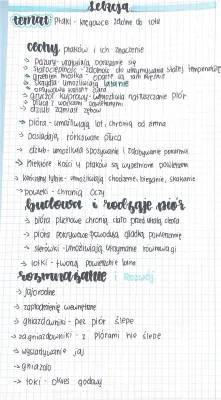 Lekcja
temat: Ptaki - kręgowce zdolne do lotu
Cechy ptaków i ich znaczenie
→ Pazury - urajdzają poruszanie się
→ Stałocieplność - zdolność do utrzymywania stałej temperatury
→ Skrzydła umożliwiają latanie
→ gruczoł kuprowy - umożliwia natłuszczanie piór
→ płuca z workami powietrznymi
→ dziób zamiast zębów
→ pióra - umożliwiają lot, chronią od zimna
→ Posiadają, workowate płuca
→ dziób - umożliwia spożywanie i zdobywanie pokarmu
→ Niektóre kości u ptaków są wypełnione powietrzem
→ kończyny tylne - umożliwiają chodzenie, bieganie, skakanie
→ powieki - chronią oczy
budowa i rodzaje piór
→ pióra puchowe chronią ciało przed utratą ciepła
→ pióra pokrywowe powodują gładką powierzchnię
→ sterówki - umożliwiają utrzymanie równowagi
→ lotki - tworzą powierzchnie lotne
rozmnażanie i Rozwój
→ jajorodne
→ zapłodnienie wewnętrzne
→ gniazdowniki - bez piór ślepe
→ zagniazdowniki - z piórami nie ślepe
→ wysiadywanie jaj
→ gniazda
→ toki - okres godowy